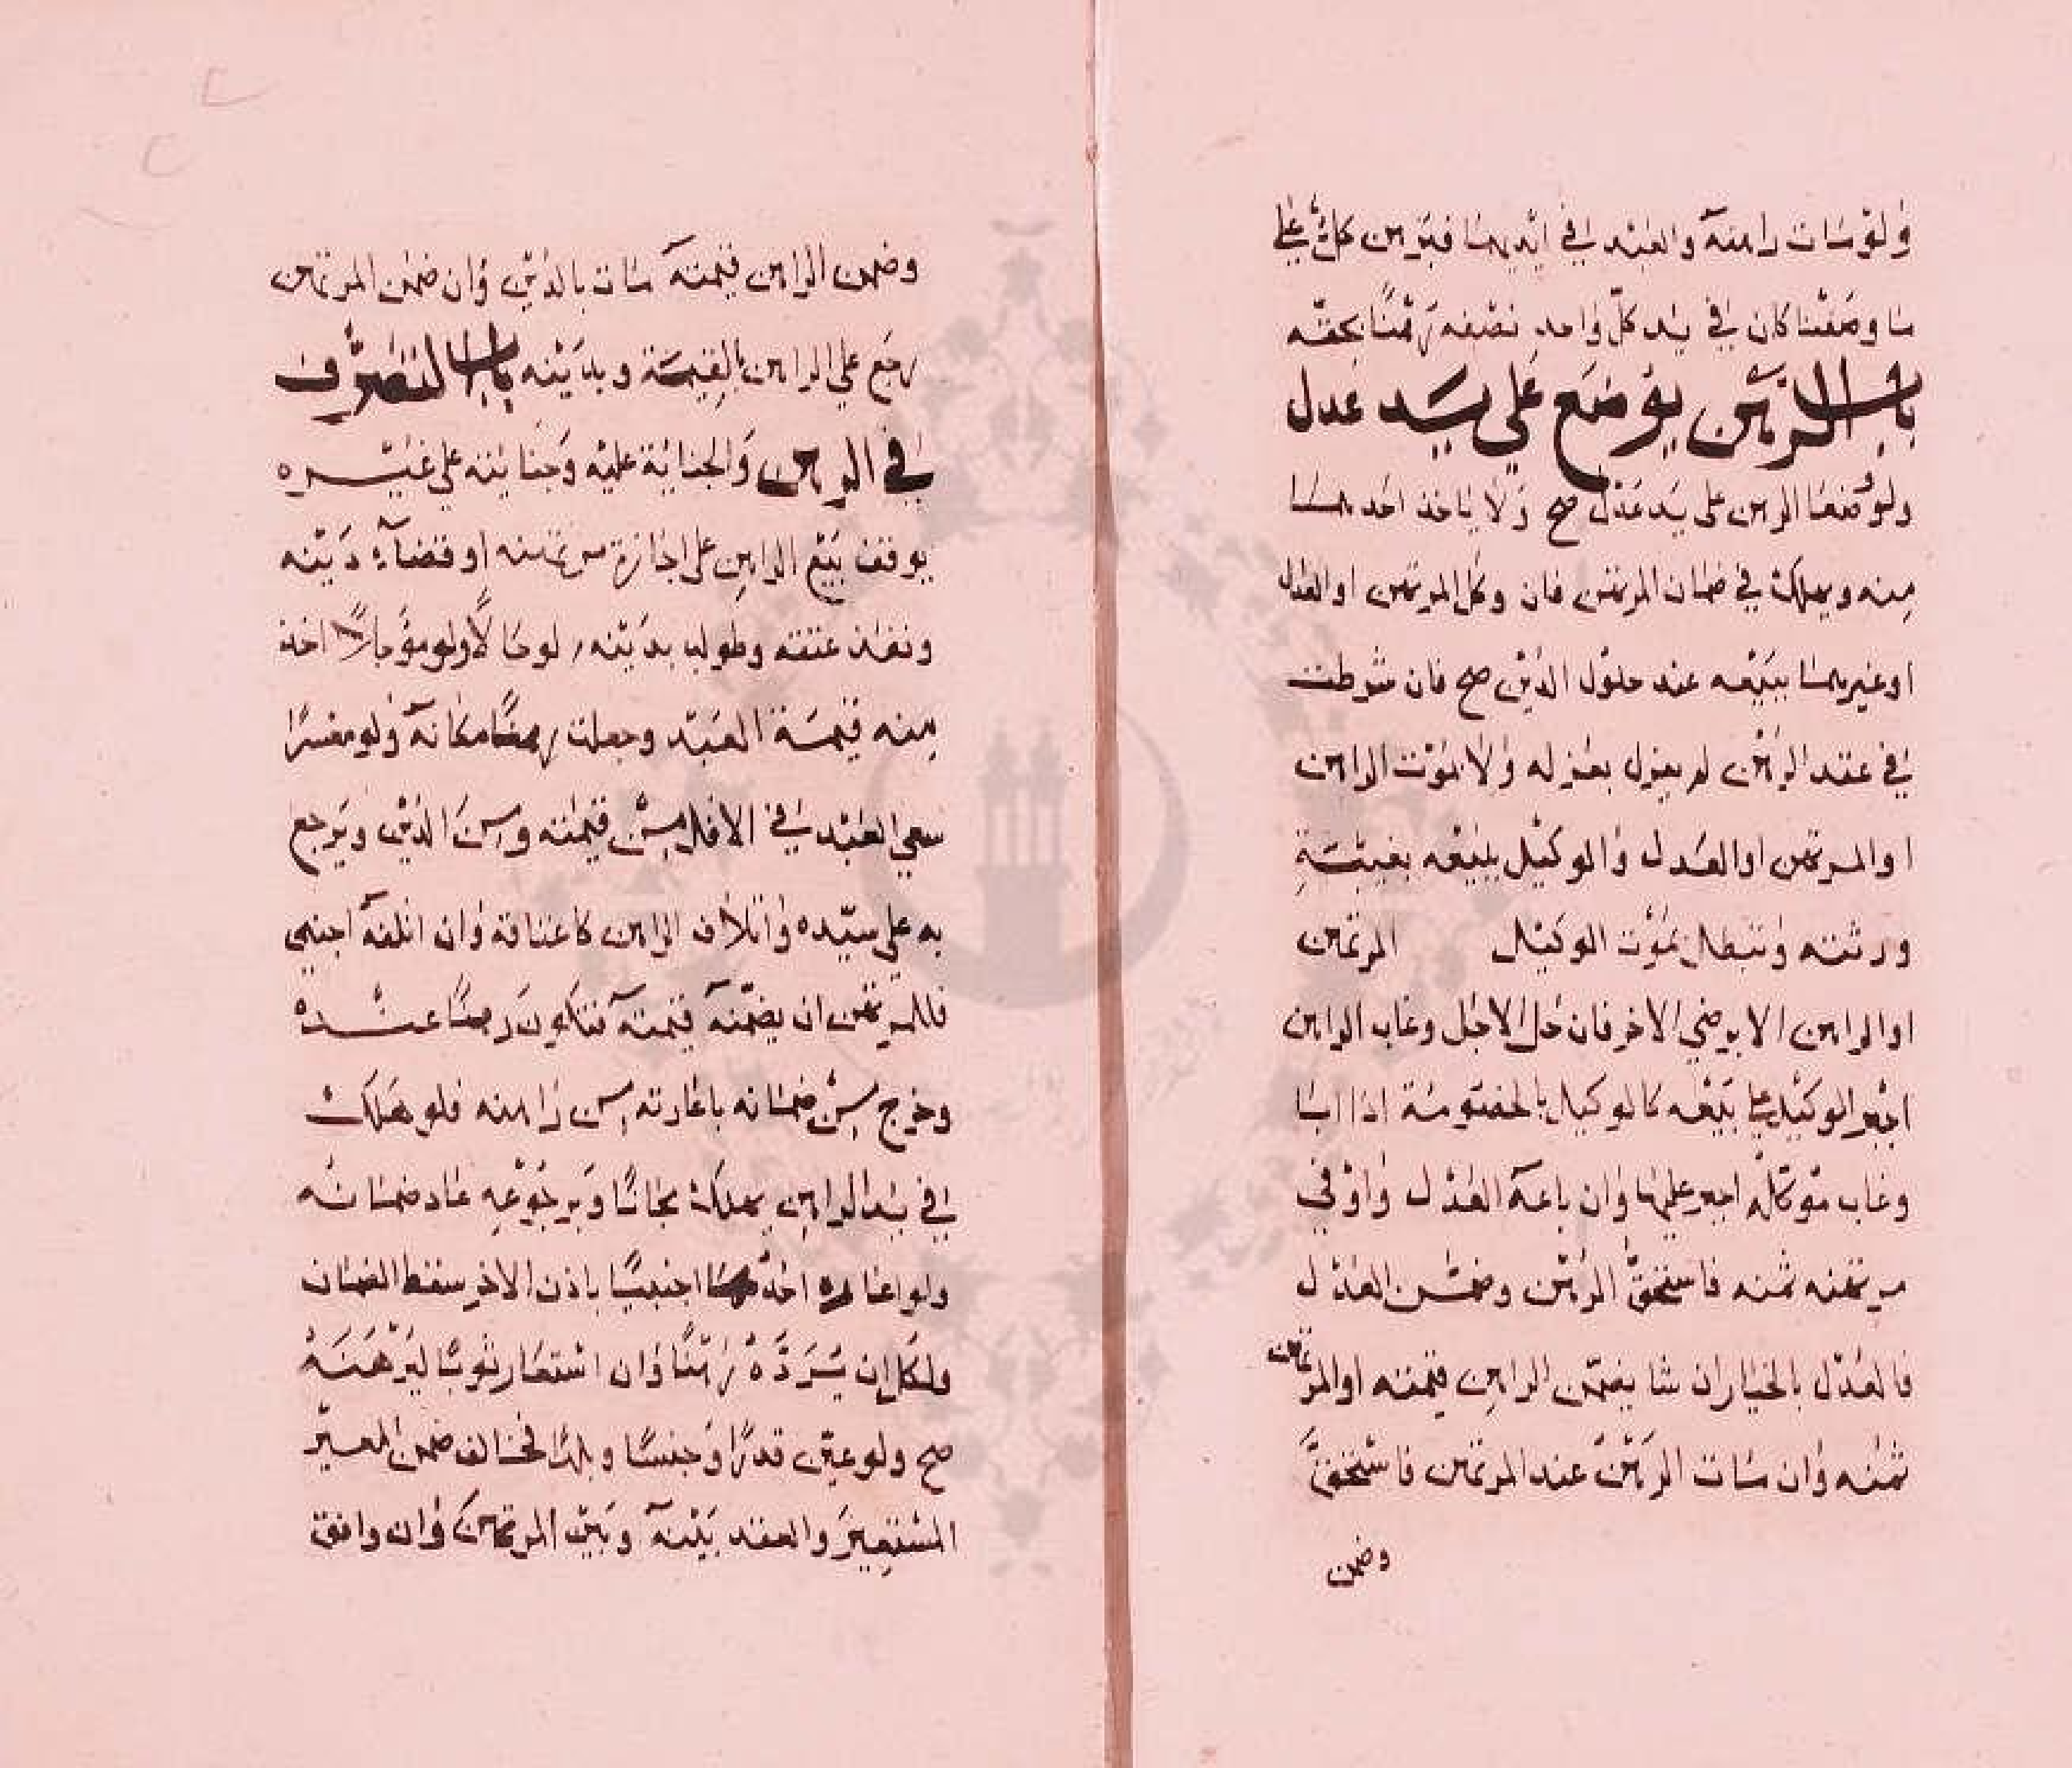 ولو مات راهنه والعبد في ايديهما فبرهن كل على
ما وصفنا كان في يد كل واحد نصفه رهنًا بحقه
باب الرهن يوضع على يد عدل
ولو وضعا الرهن على يد عدل صح ولا ياخذ احدهما
منه ويهلك في ضمان المرتهن فان وكل المرتهن او العدل
او غيرهما ببيعه عند حلول الدين صح فان شرطت
في عقد الرهن لم يعزل بعزله ولا بموت الراهن
او المرتهن او العدل والوكيل يبيعه بغيبة
ورثته وتبطل بموت الوكيل المرتهن
او الراهن الا برضي الاخر فان حل الاجل وغاب الراهن
اجبر الوكيل على بيعه كالوكيل بالخصومة اذا ابا
وغاب موكله اجبر عليها وان باعه العدل واوفي
مرتهنه ثمنه فاستحق الرهن وضمن العدل
فالعدل بالخيار ان شا يضمن الراهن قيمته او المرتهن
ثمنه وان مات الرهن عند المرتهن فاستحق
وضمن
وضمن الراهن قيمته مات بالدين وان ضمن المرتهن
رجع على الراهن بالقيمة وبدينه باب التصرف
في الرهن والجناية عليه وجنايته على غيره
يوقف بيع الراهن على اجازة مرتهنه او قضآء دينه
ونفذ عتقه وطولب بدينه لو حالًا ولو مؤجلا اخذ
منه قيمة العبد وجعلت رهنًا مكانه ولو معسرًا
سعي العبد في الاقل من قيمته ومن الدين ويرجع
به على سيده واتلاف الراهن كاعتاقه وان اتلفه اجنبي
فالمرتهن ان يضمنه قيمته فتكون رهنًا عنده
وخرج من ضمانه باعارته من راهنه فلو هلك
في يد الراهن يهلك مجانًا وبرجوعه عاد ضمانه
ولو اعاره احدهما اجنبيًا باذن الاخر سقط الضمان
ولكل ان يرده رهنًا وان استعار ثوبًا ليرهنه
صح ولو عين قدرًا وجنسًا وبلدًا فخالف ضمن المعير
المستعير والعقد بينه وبين المرتهن وان وافق